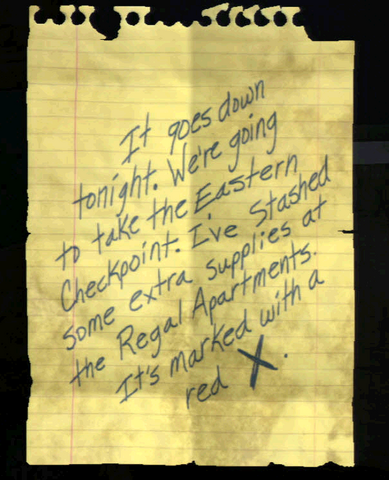 It goes down
tonight. We're going
to take the Eastern
Checkpoint. I've Stashed
some extra supplies at
the Regal Apartments.
It's marked with a
red X.